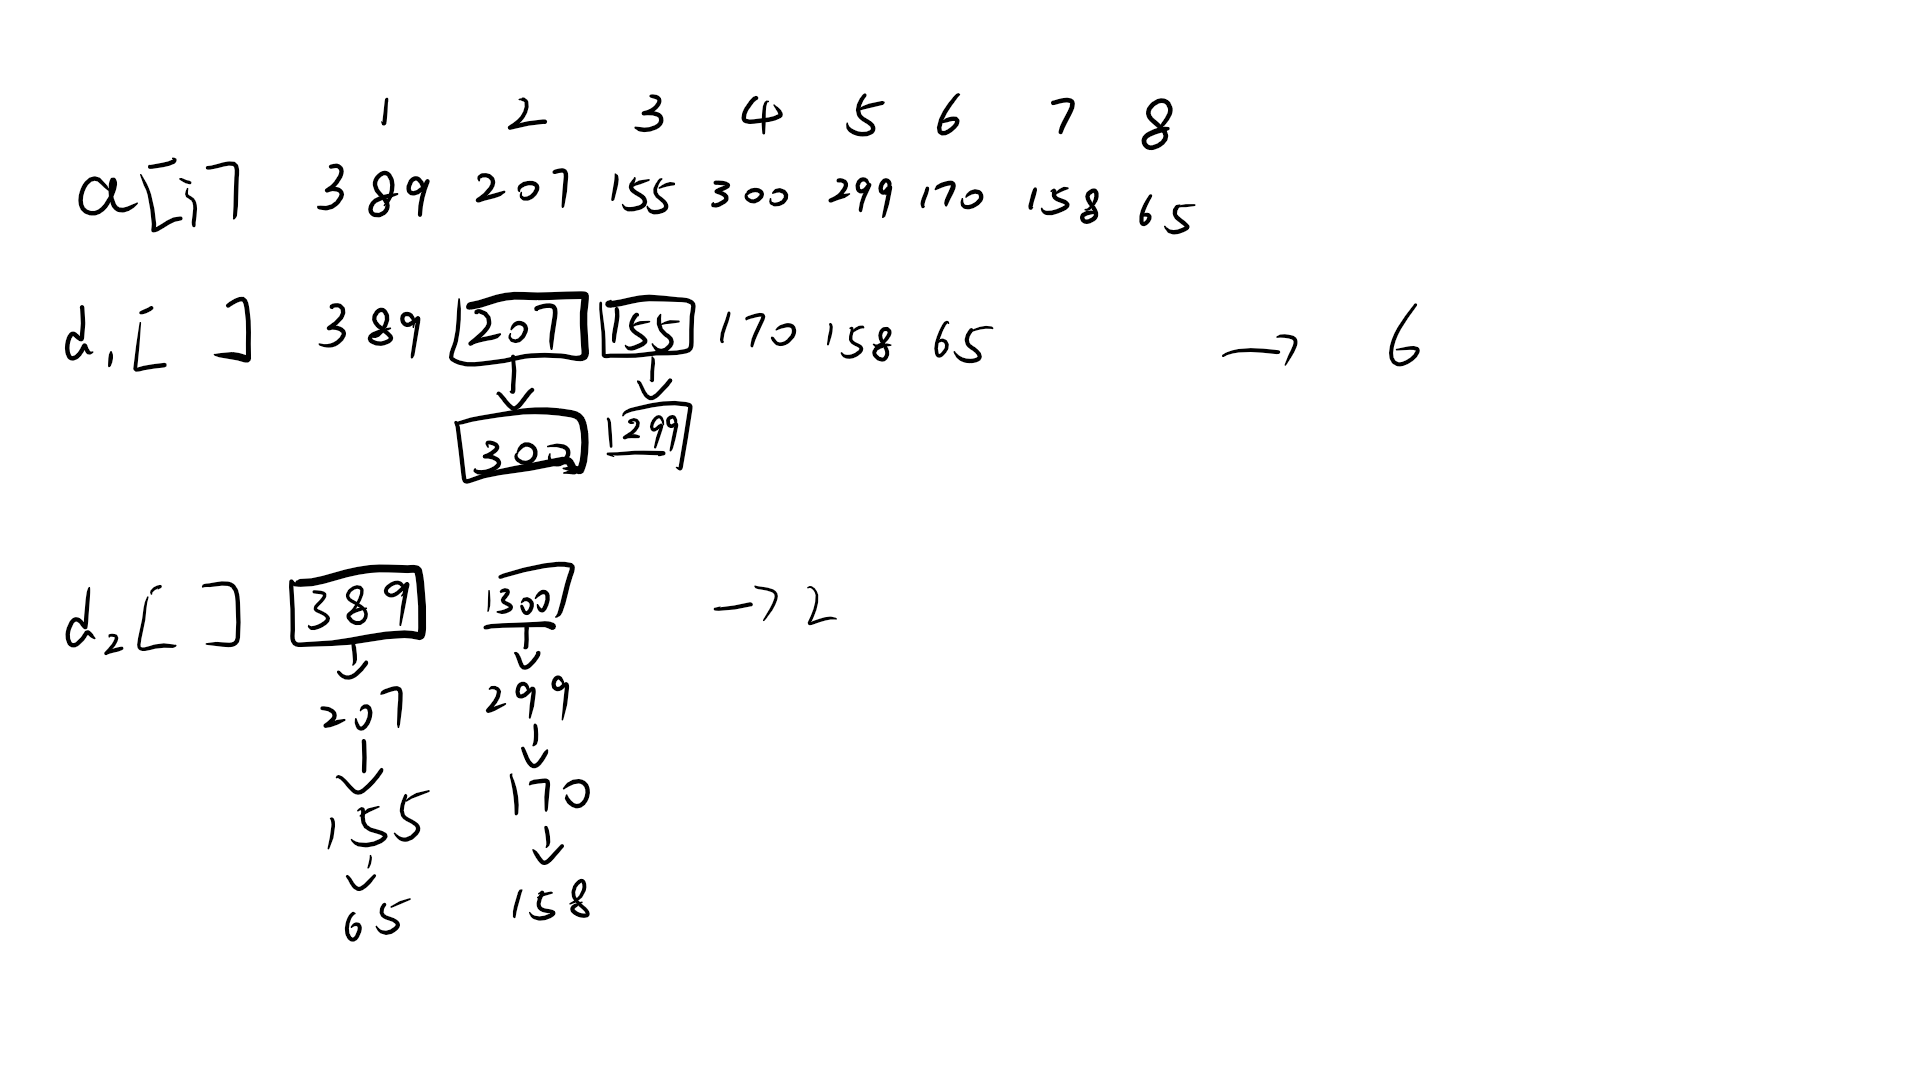 1 2 3 4 5 6 7 8
a[i] 389 207 155 300 299 170 158 65
d1[ ] 389 207 155 170 158 65 → 6
↓ ↓
300 299
d2[ ] 389 300 → 2
↓ ↓
207 299
↓ ↓
155 170
↓ ↓
65 158